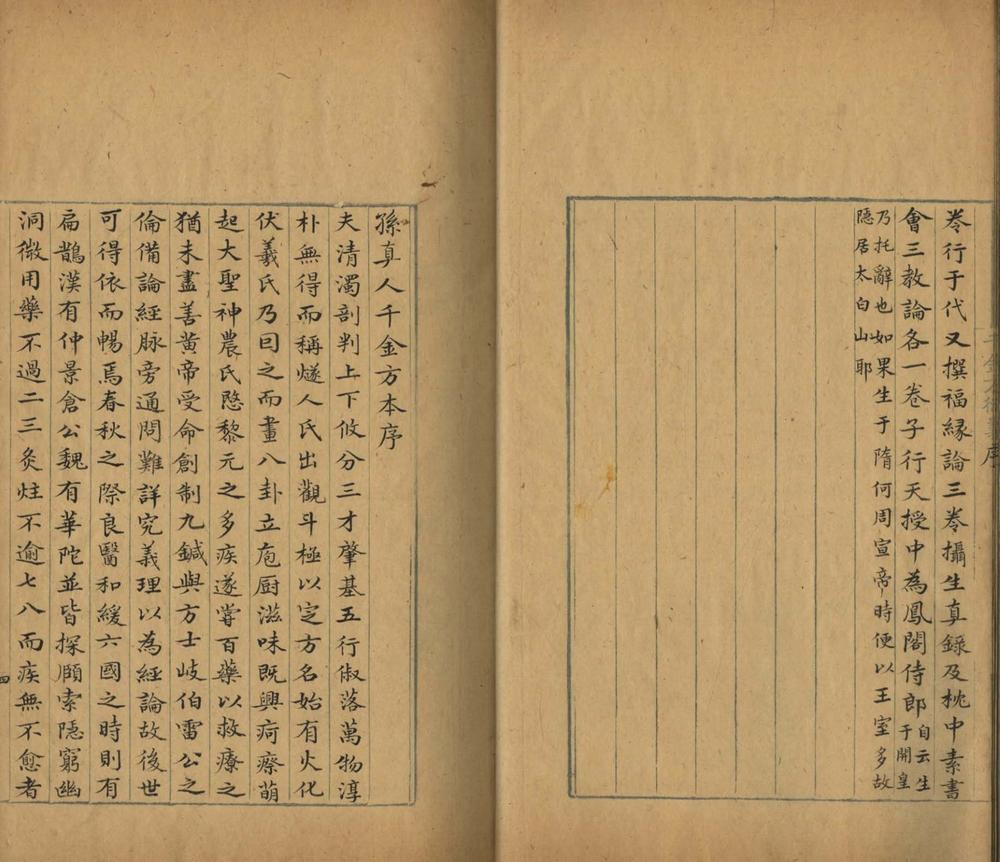 卷行于代又撰福緣論三卷攝生真錄及枕中素書
會三教論各一卷子行天授中為鳳閣侍郎自云生于開皇
乃托辭也如果生于隋何周宣帝時便以王室多故
隱居太白山耶
孫真人千金方本序
夫清濁剖判上下攸分三才肇基五行俶落萬物淳
朴無得而稱燧人氏出觀斗極以定方名始有火化
伏羲氏乃因之而畫八卦立庖厨滋味既興疴瘵萌
起大聖神農氏愍黎元之多疾遂嘗百藥以救療之
猶未盡善黃帝受命創制九鍼與方士岐伯雷公之
倫備論經脉旁通問難詳究義理以為經論故後世
可得依而暢焉春秋之際良醫和緩六國之時則有
扁鵲漢有仲景倉公魏有華陀並皆探賾索隱窮幽
洞微用藥不過二三灸炷不逾七八而疾無不愈者
四